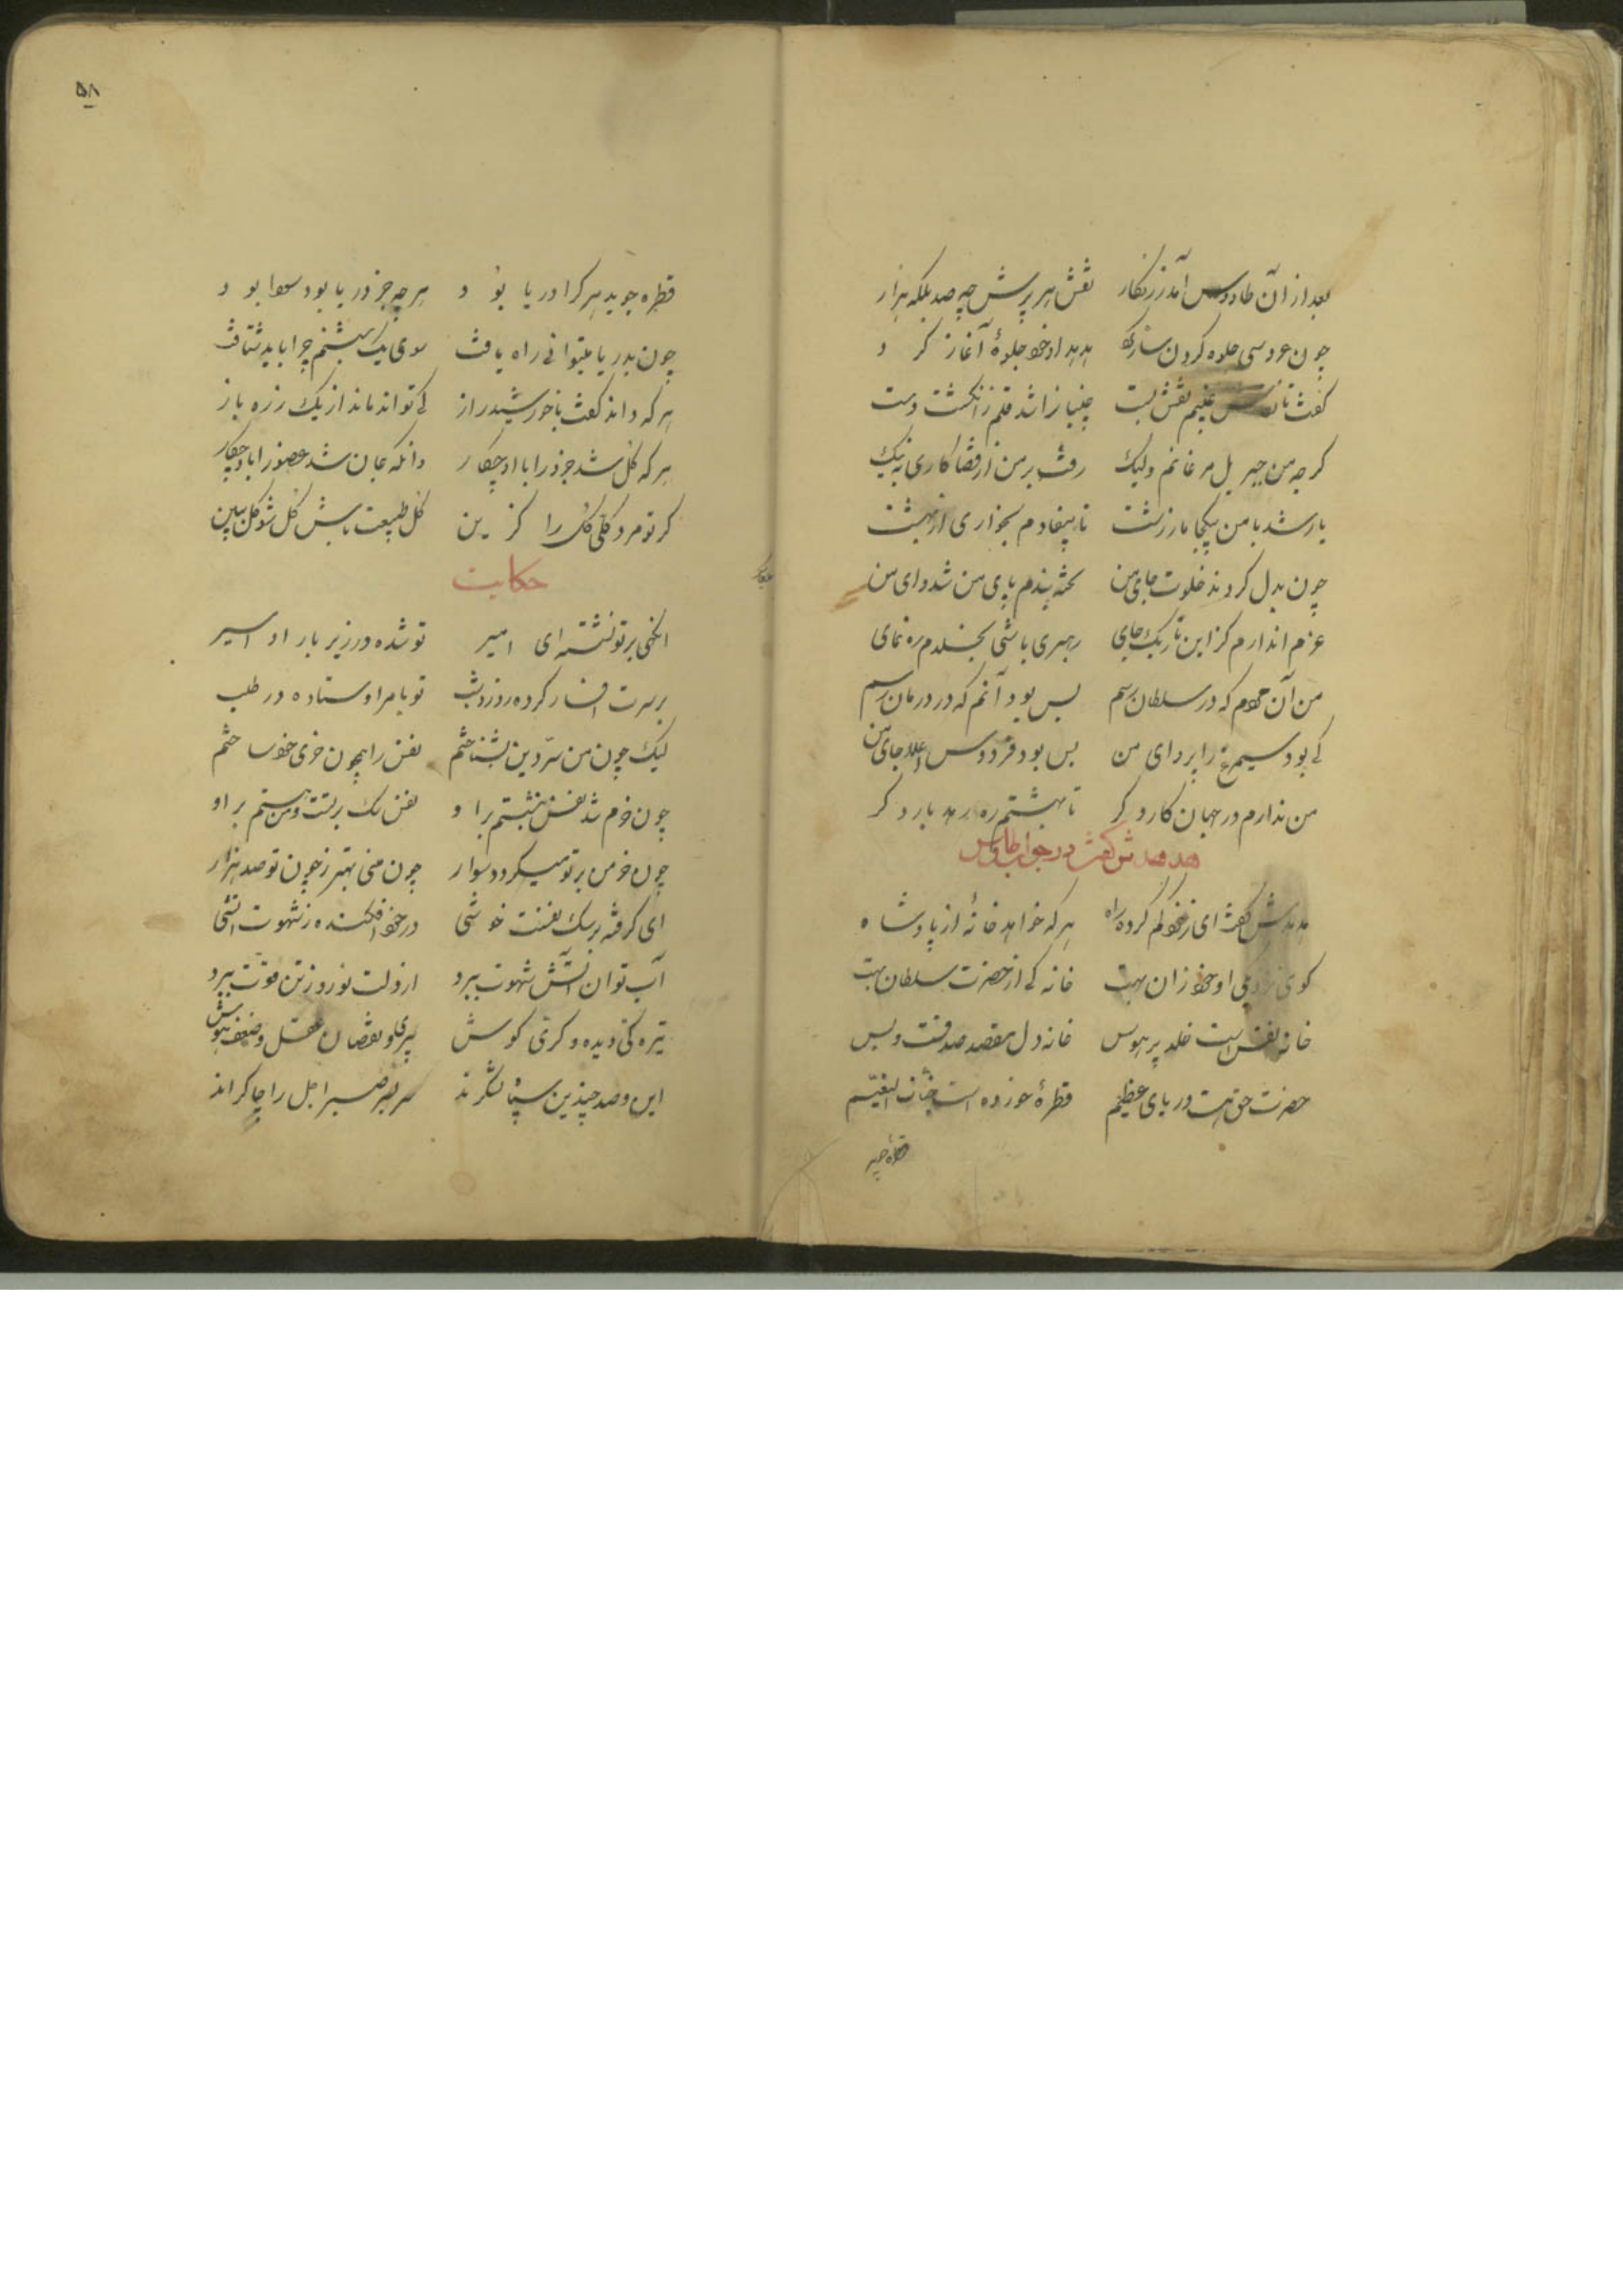 بعد از آن طاووس آمد زرنگار نقش هر پرش چه صد بلکه هزار
چون عروسی جلوه کردن ساز کرد هر پر او خود جلوهٔ آغاز کرد
گفت تا نقاش غیبم نقش بست چینیانرا شد قلم زانگشت دست
گرچه من جبریل مرغانم ولیک رفت بر من از قضا کاری نه نیک
یار شد با من بیکجا مار زشت تا بیفتادم بخواری از بهشت
چون بدل کردند خلوت جای من تخته بند پای من شد وای من
عزم آن دارم کز این تاریک جای رهبری باشی بخلدم رهنمای
من آن که در سلطان رسم بس بود آنم که در درمان رسم
کی بود سیمرغ را پروای من بس بود فردوس اعلا جای من
من ندارم در جهان کار دگر تا بهشتم ره دهد بار دگر
هدهدش گفت در جواب طاوس
هدهدش گفت ای ز خود گم کرده راه هر که خواهد خانهٔ از پادشاه
گوی نزدیکی او خود زان بهست خانه کی از حضرت سلطان بهست
خانه نفس است خلد پر هوس خانه دل مقصد صدقست و بس
حضرت حق هست دریای عظیم قطرهٔ خورده است جنات النعیم
قطره جوید
۵۸
قطره جوید هر کرا دریا بود هر چه جز دریا بود سودا بود
چون بدریا میتوانی راه یافت سوی یک شبنم چرا باید شتافت
هر که داند گفت با خورشید راز کی تواند ماند از یک ذره باز
هر که کل شد جزو را با او چکار وانکه جان شد عضو را با او چکار
گر تو مرد کلی کل را گزین کل طلب باش کل شو کل ببین
حکایت
انکهی بر تو نشسته ای امیر تو شده در زیر بار او اسیر
بر سرت افسار کرده روز و شب تو بامر او ستاده در طلب
لیک چون من سر دین بشناختم نفس را همچون خری خود ساختم
چون خرم شد نفس بنشستم بر او نفس سگ بر تست و من هستم بر او
چون خر من بر تو میگردد سوار چون منی بهتر ز چون تو صد هزار
ای گرفته بر سگ نفست خوشی در خود افکنده ز شهوت آتشی
آب تو آن آتش شهوت ببرد از دلت نور و ز تن قوت ببرد
تیره کی دیده و کری گوش پیری و نقصان عقل و ضعف هوش
این و صد چندین سپاه و لشکرند سر بسر میر اجل را چاکرند